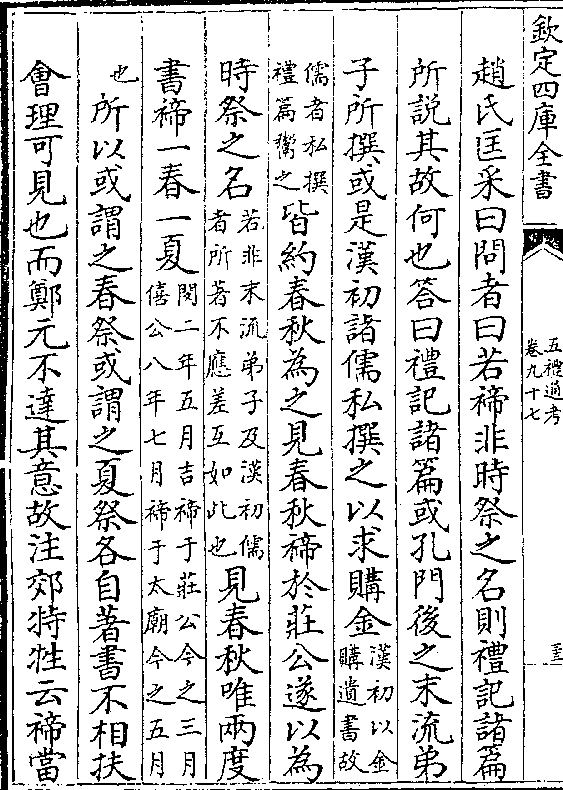 欽定四庫全書
五禮通考
卷九十七
趙氏匡采曰問者曰若禘非時祭之名則禮記諸篇
所説其故何也答曰禮記諸篇或孔門後之末流弟
子所撰或是漢初諸儒私撰之以求購金漢初以金購遺書故
儒者私撰禮篇鬻之皆約春秋為之見春秋禘於莊公遂以為
時祭之名若非末流弟子及漢初儒者所著不應差互如此也見春秋唯兩度
書禘一春一夏閔二年五月吉禘于莊公今之三月僖公八年七月禘于太廟今之五月
也所以或謂之春祭或謂之夏祭各自著書不相扶
會理可見也而鄭元不達其意故注郊特牲云禘當